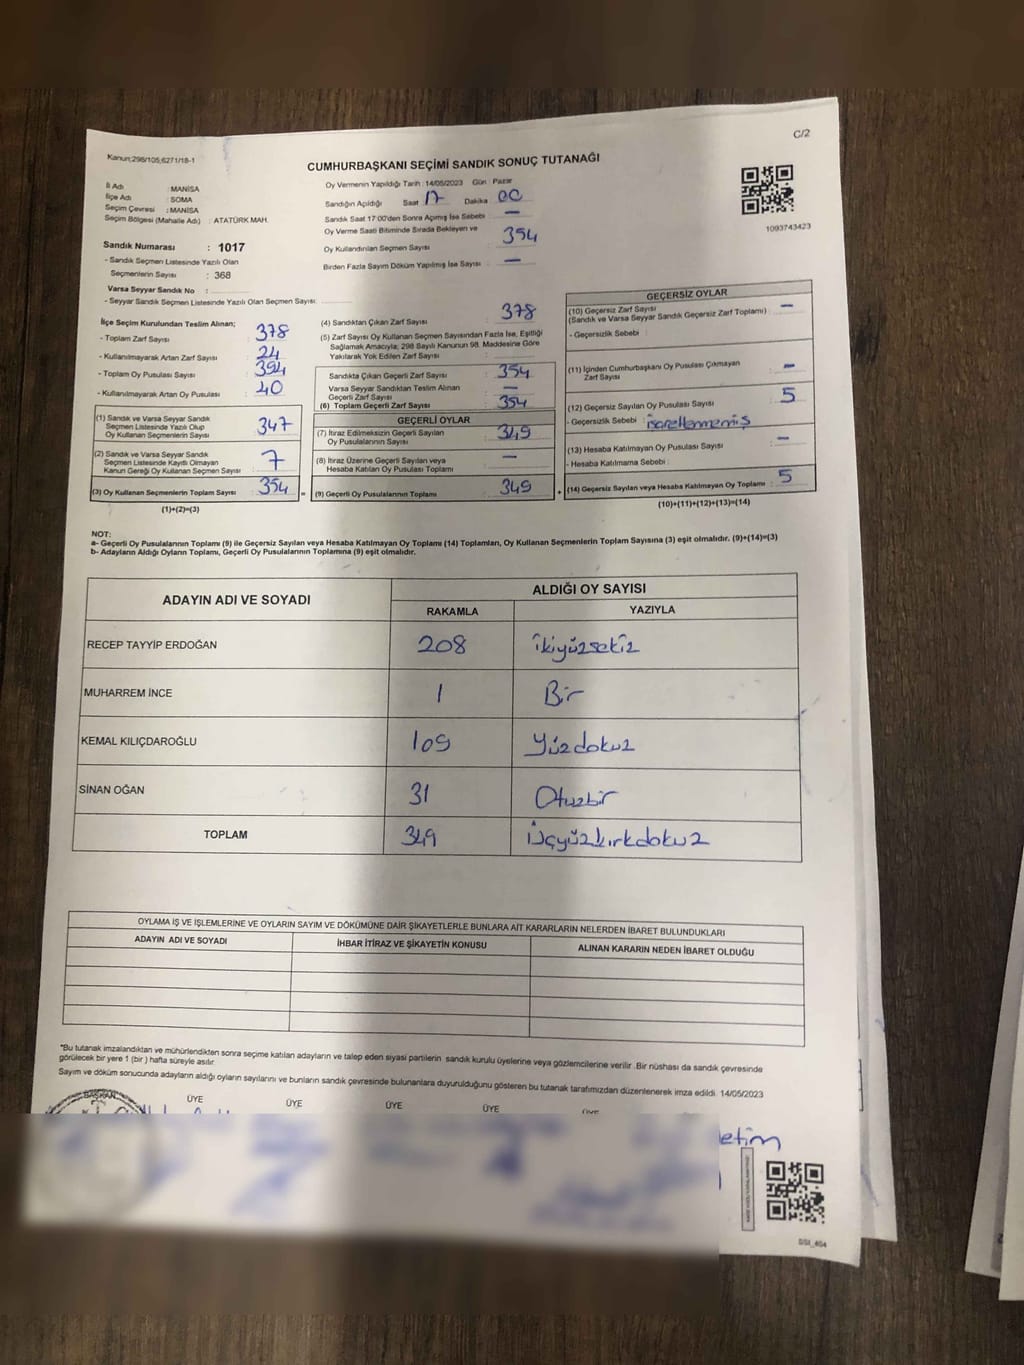 C/2
Kanun;298/105,6271/18-1
CUMHURBAŞKANI SEÇİMİ SANDIK SONUÇ TUTANAĞI
İl Adı : MANİSA
İlçe Adı : SOMA
Seçim Çevresi : MANİSA
Seçim Bölgesi (Mahalle Adı) : ATATÜRK MAH.
Sandık Numarası : 1017
- Sandık Seçmen Listesinde Yazılı Olan
Seçmenlerin Sayısı : 368
Varsa Seyyar Sandık No :
- Seyyar Sandık Seçmen Listesinde Yazılı Olan Seçmen Sayısı:
Oy Vermenin Yapıldığı Tarih : 14/05/2023 Gün : Pazar
Sandığın Açıldığı Saat 17 Dakika 00
Sandık Saat 17:00'den Sonra Açılmış İse Sebebi : —
Oy Verme Saati Bitiminde Sırada Bekleyen ve
Oy Kullandırılan Seçmen Sayısı : 354
Birden Fazla Sayım Döküm Yapılmış İse Sayısı : —
1093743423
İlçe Seçim Kurulundan Teslim Alınan;
- Toplam Zarf Sayısı : 378
- Kullanılmayarak Artan Zarf Sayısı : 24
- Toplam Oy Pusulası Sayısı : 394
- Kullanılmayarak Artan Oy Pusulası : 40
(1) Sandık ve Varsa Seyyar Sandık
Seçmen Listesinde Yazılı Olup
Oy Kullanan Seçmenlerin Sayısı : 347
(2) Sandık ve Varsa Seyyar Sandık
Seçmen Listesinde Kayıtlı Olmayan
Kanun Gereği Oy Kullanan Seçmen Sayısı : 7
(3) Oy Kullanan Seçmenlerin Toplam Sayısı : 354 =
(1)+(2)=(3)
(4) Sandıktan Çıkan Zarf Sayısı : 378
(5) Zarf Sayısı Oy Kullanan Seçmen Sayısından Fazla İse, Eşitliği
Sağlamak Amacıyla; 298 Sayılı Kanunun 98. Maddesine Göre
Yakılarak Yok Edilen Zarf Sayısı :
Sandıkta Çıkan Geçerli Zarf Sayısı : 354
Varsa Seyyar Sandıktan Teslim Alınan
Geçerli Zarf Sayısı : —
(6) Toplam Geçerli Zarf Sayısı : 354
GEÇERLİ OYLAR
(7) İtiraz Edilmeksizin Geçerli Sayılan
Oy Pusulalarının Sayısı : 349
(8) İtiraz Üzerine Geçerli Sayılan veya
Hesaba Katılan Oy Pusulası Toplamı : —
(9) Geçerli Oy Pusulalarının Toplamı : 349 +
GEÇERSİZ OYLAR
(10) Geçersiz Zarf Sayısı
(Sandık ve Varsa Seyyar Sandık Geçersiz Zarf Toplamı) : —
- Geçersizlik Sebebi :
(11) İçinden Cumhurbaşkanı Oy Pusulası Çıkmayan
Zarf Sayısı : —
(12) Geçersiz Sayılan Oy Pusulası Sayısı : 5
- Geçersizlik Sebebi : işaretlenmemiş
(13) Hesaba Katılmayan Oy Pusulası Sayısı : —
- Hesaba Katılmama Sebebi :
(14) Geçersiz Sayılan veya Hesaba Katılmayan Oy Toplamı : 5
(10)+(11)+(12)+(13)=(14)
NOT:
a- Geçerli Oy Pusulalarının Toplamı (9) ile Geçersiz Sayılan veya Hesaba Katılmayan Oy Toplamı (14) Toplamları, Oy Kullanan Seçmenlerin Toplam Sayısına (3) eşit olmalıdır. (9)+(14)=(3)
b- Adayların Aldığı Oyların Toplamı, Geçerli Oy Pusulalarının Toplamına (9) eşit olmalıdır.
ADAYIN ADI VE SOYADI ALDIĞI OY SAYISI
RAKAMLA YAZIYLA
RECEP TAYYİP ERDOĞAN 208 ikiyüzsekiz
MUHARREM İNCE 1 Bir
KEMAL KILIÇDAROĞLU 109 Yüzdokuz
SİNAN OĞAN 31 Otuzbir
TOPLAM 349 Üçyüzkırkdokuz
OYLAMA İŞ VE İŞLEMLERİNE VE OYLARIN SAYIM VE DÖKÜMÜNE DAİR ŞİKAYETLERLE BUNLARA AİT KARARLARIN NELERDEN İBARET BULUNDUKLARI
ADAYIN ADI VE SOYADI İHBAR İTİRAZ VE ŞİKAYETİN KONUSU ALINAN KARARIN NEDEN İBARET OLDUĞU
"Bu tutanak imzalandıktan ve mühürlendikten sonra seçime katılan adayların ve talep eden siyasi partilerin sandık kurulu üyelerine veya gözlemcilerine verilir .Bir nüshası da sandık çevresinde
görülecek bir yere 1 (bir ) hafta süreyle asılır.
Sayım ve döküm sonucunda adayların aldığı oyların sayılarını ve bunların sandık çevresinde bulunanlara duyurulduğunu gösteren bu tutanak tarafımızdan düzenlenerek imza edildi. 14/05/2023
BAŞKAN ÜYE ÜYE ÜYE ÜYE ÜYE
etim
SSI_404